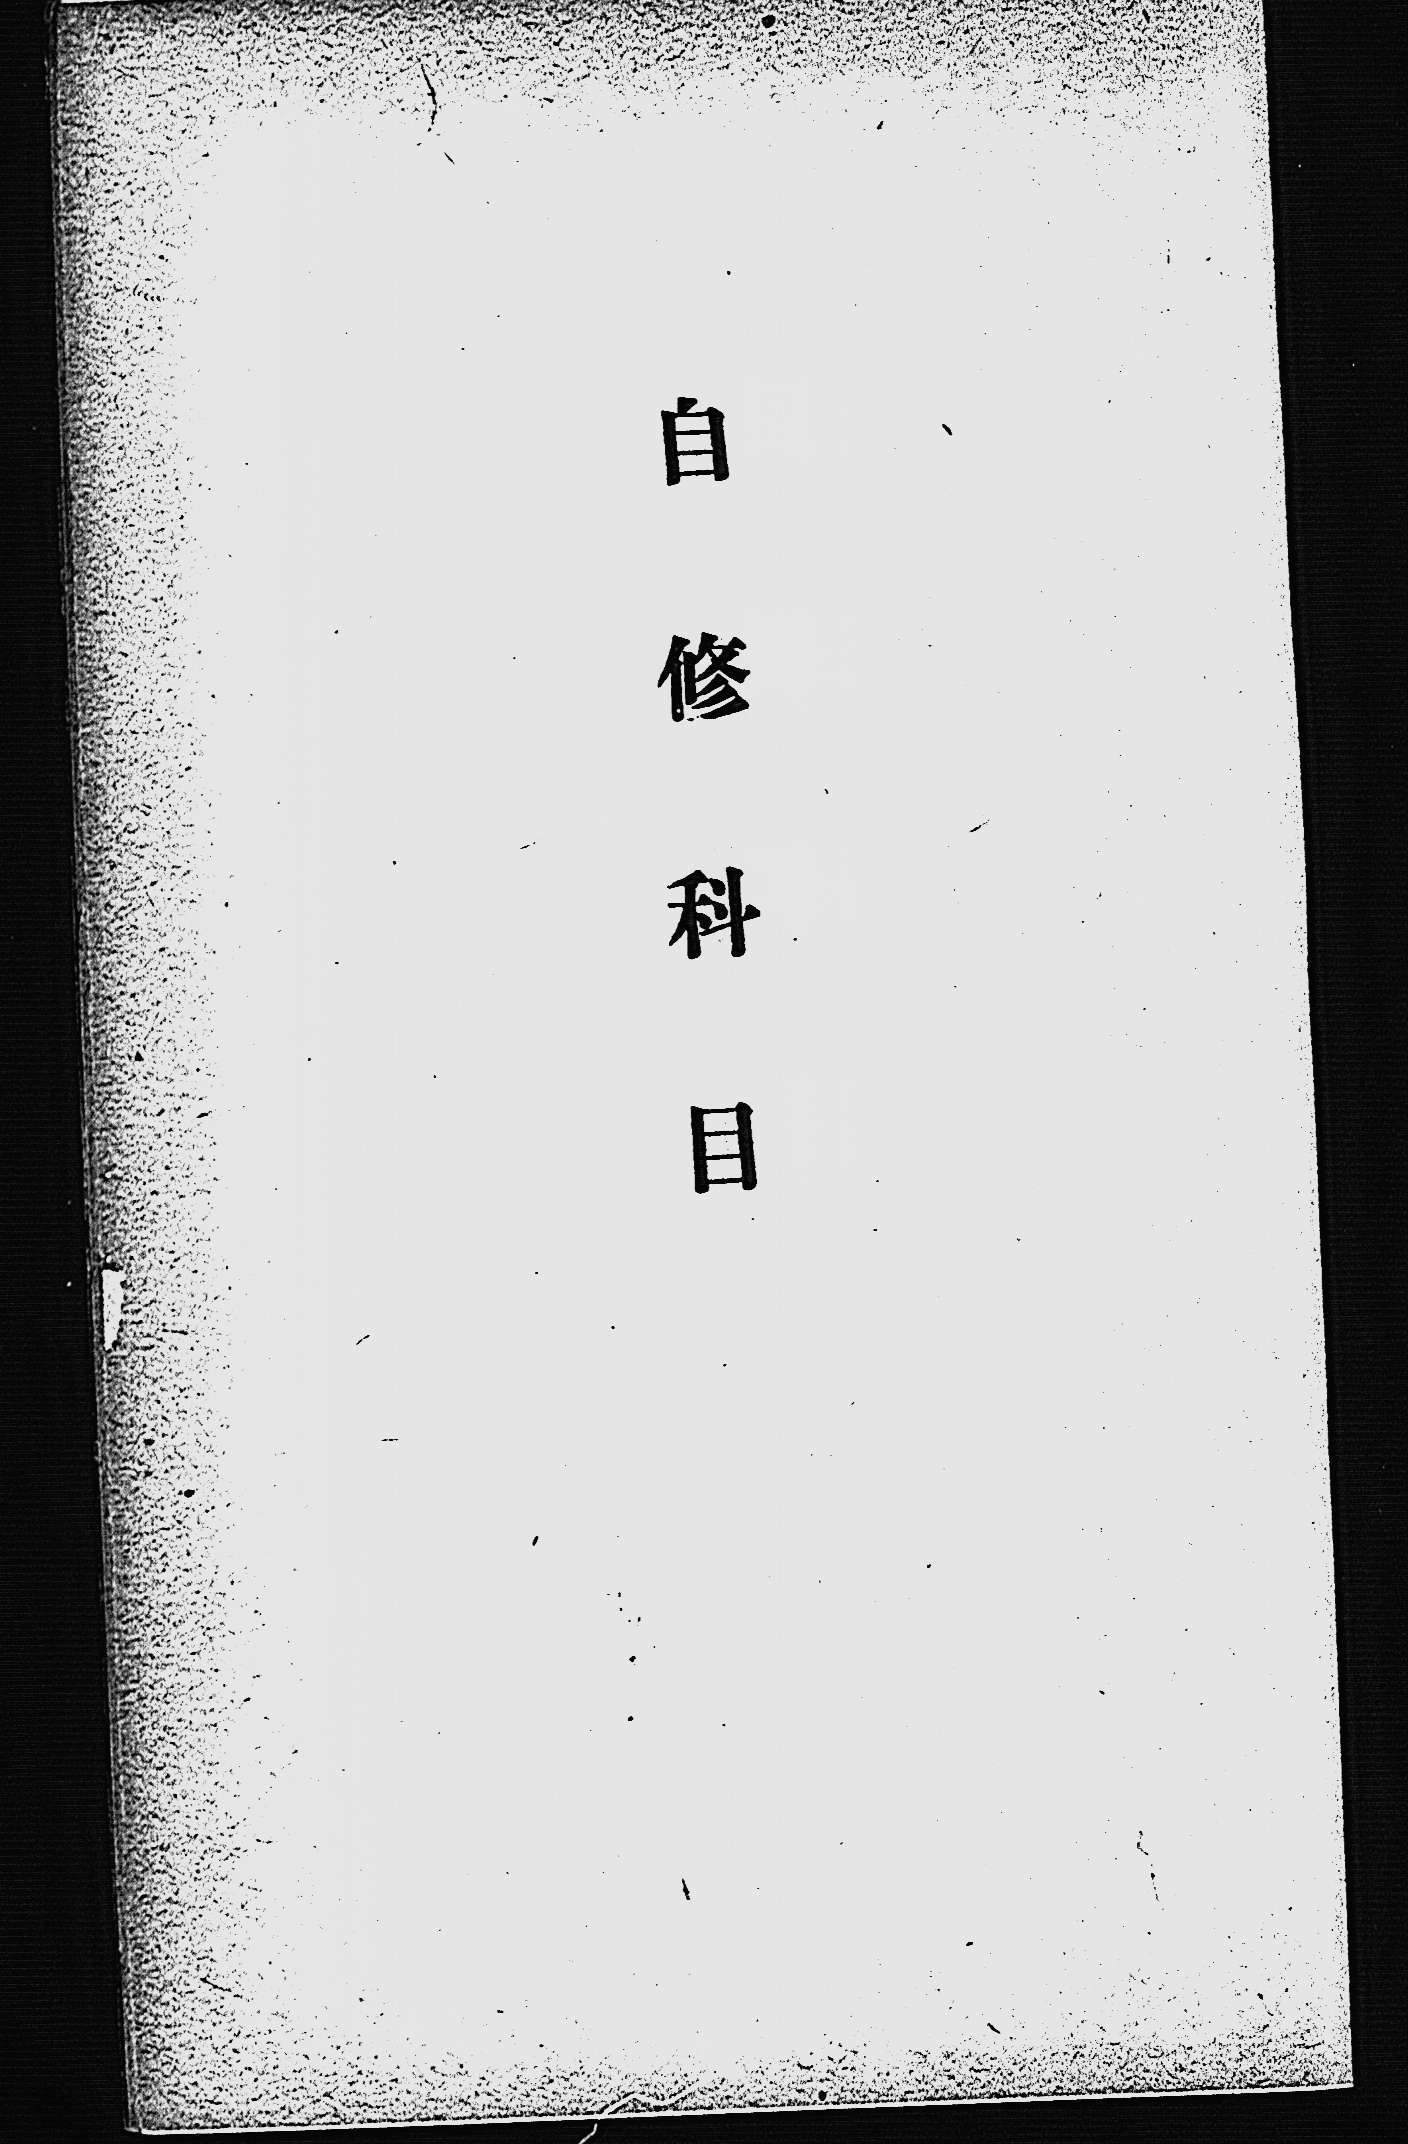 自修科目